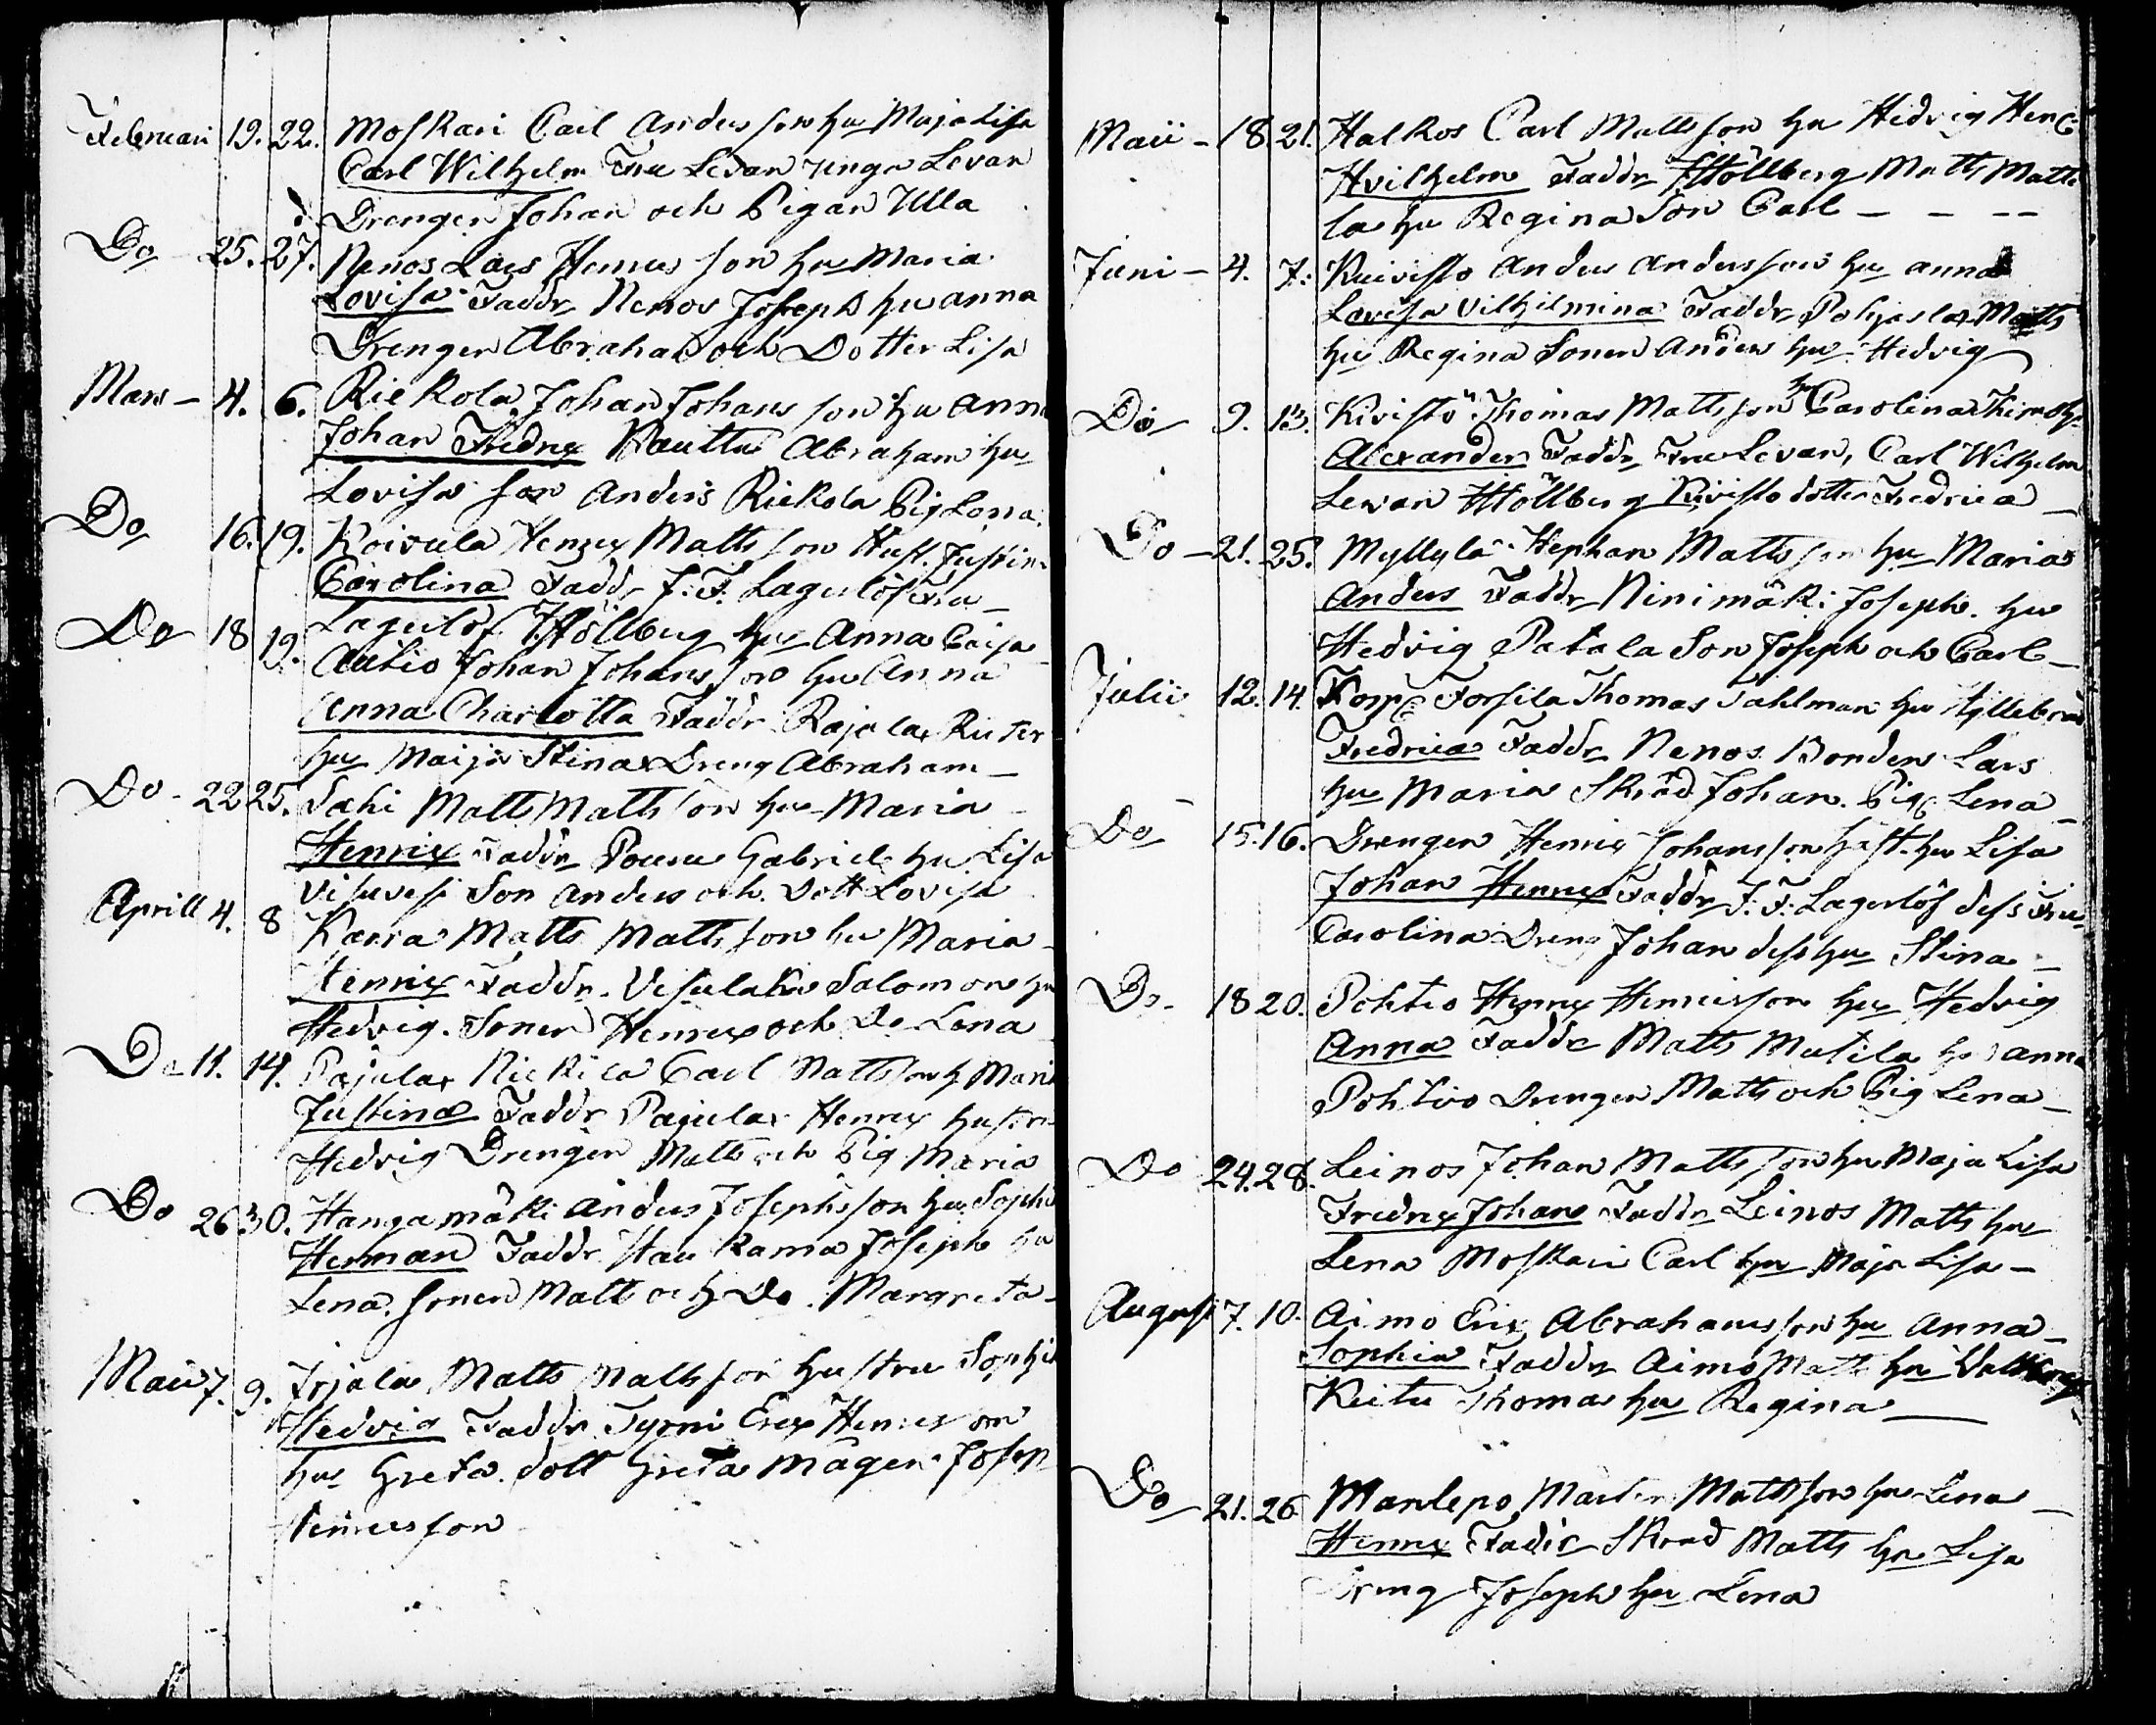 Februari 19. 22. Moskari Carl Anders son hu Maja Lisa
Carl Wilhelm Fru Levan unga Levan
Drengen Johan och Pigan Ulla
Do 25. 27. Nenos Lars Henrics son hu Maria
Lovisa Faddr Nenos Joseph hu anna
Drengen Abraham och Dotter Lisa
Mars - 4. 6. Riekola Johan Johans son hu Anna
Johan Fredrix Rauttu Abraham hu
Lovisa son Anders Riekola Pig Lena
Do 16. 19. Koivula Henrix Matts son Hust. Justin
Carolina Faddr J: F: Lagerlöf Fru
Lagerlöf Höllberg hu Anna Caisa
Do 18 19. Autio Johan Johans son hu Anna
Anna Charlotta Faddr Rajala
hu Maija Stina Dreng Abraham
Do - 22 25. Saki Matts Matts son hu Maria
Henrix Faddr Pouru Gabriel hu Lisa
Visuvesi Son Anders och Dott Lovisa
Aprill 4. 8 Karra Matts Matts son hu Maria
Henrix Faddr. Salomon hu
Hedvig. Sonen Henrix och Do Lena
Do 11. 14. Pajula Riekila Carl Matts son h Mari
Justina Faddr Pajula Henrix hustru
Hedvig Drengen Matts och Pig Maria
Do 26 30. Hangamäki Anders Josephsson hu Sophi
Herman Faddr Haukama Joseph hu
Lena. Sonen Matt och Do. Margreta
Maii 7. 9. Irjala Matts Matts son hustru Sophi
Hedvig Faddr Tyrni Erix Henrics son
hu Greta. dott Greta Mågen Josep
Henricsson
Maii - 18 21. Halkos Carl Matts son hu Hedvig Hen
Hvilhelm Faddr Höllberg Matts Matti
la hu Regina Son Carl - - - -
Juni - 4. 7: Kuivisto Anders Anders son hu anna
Lovisa Vilhilmina Faddr Pohjola Matts
hu Regina Sonen Anders hu Hedvig
Do 9. 13. Kivistö Thomas Matts son hu Carolina
Alexander Faddr Fru Levan, Carl Wilhelm
Levan Höllberg Kivisto dotter Fredrica
Do - 21. 25. Myllylä Stephan Matts son hu Maria
Anders Faddr Ninimäki Joseph. hu
Hedvig Patala Son Joseph och Carl
Julii 12. 14. Torp Forsila Thomas Tahlman hu
Fredrica Faddr Nenos Bonden Lars
hu Maria Skräd Johan. Pig Lena
Do 15. 16. Drengen Henrix Johansson hust. hu Lisa
Johan Henrix Faddr J: F: Lagerlöf dess Fru
Carolina Dreng Johan dess hu Stina
Do - 18 20. Pohtio Henrix Henricsson hu Hedvig
Anna Faddr Matts Mutila hu anna
Pohtio Drengen Matts och Pig Lena
Do 24. 28. Leinos Johan Matts son hu Maja Lisa
Fredrix Johan Faddr Leinos Matts hu
Lena Moskari Carl hu Maja Lisa -
August 7. 10. Aimo Erix Abrahamsson hu Anna
Sophia Faddr Aimo Matts hu
Keitu Thomas hu Regina
Do 21. 26 Manlepo Matts son hu Lena
Henrix Faddr Skrad Matts hu Lisa
Dreng Joseph hu Lena